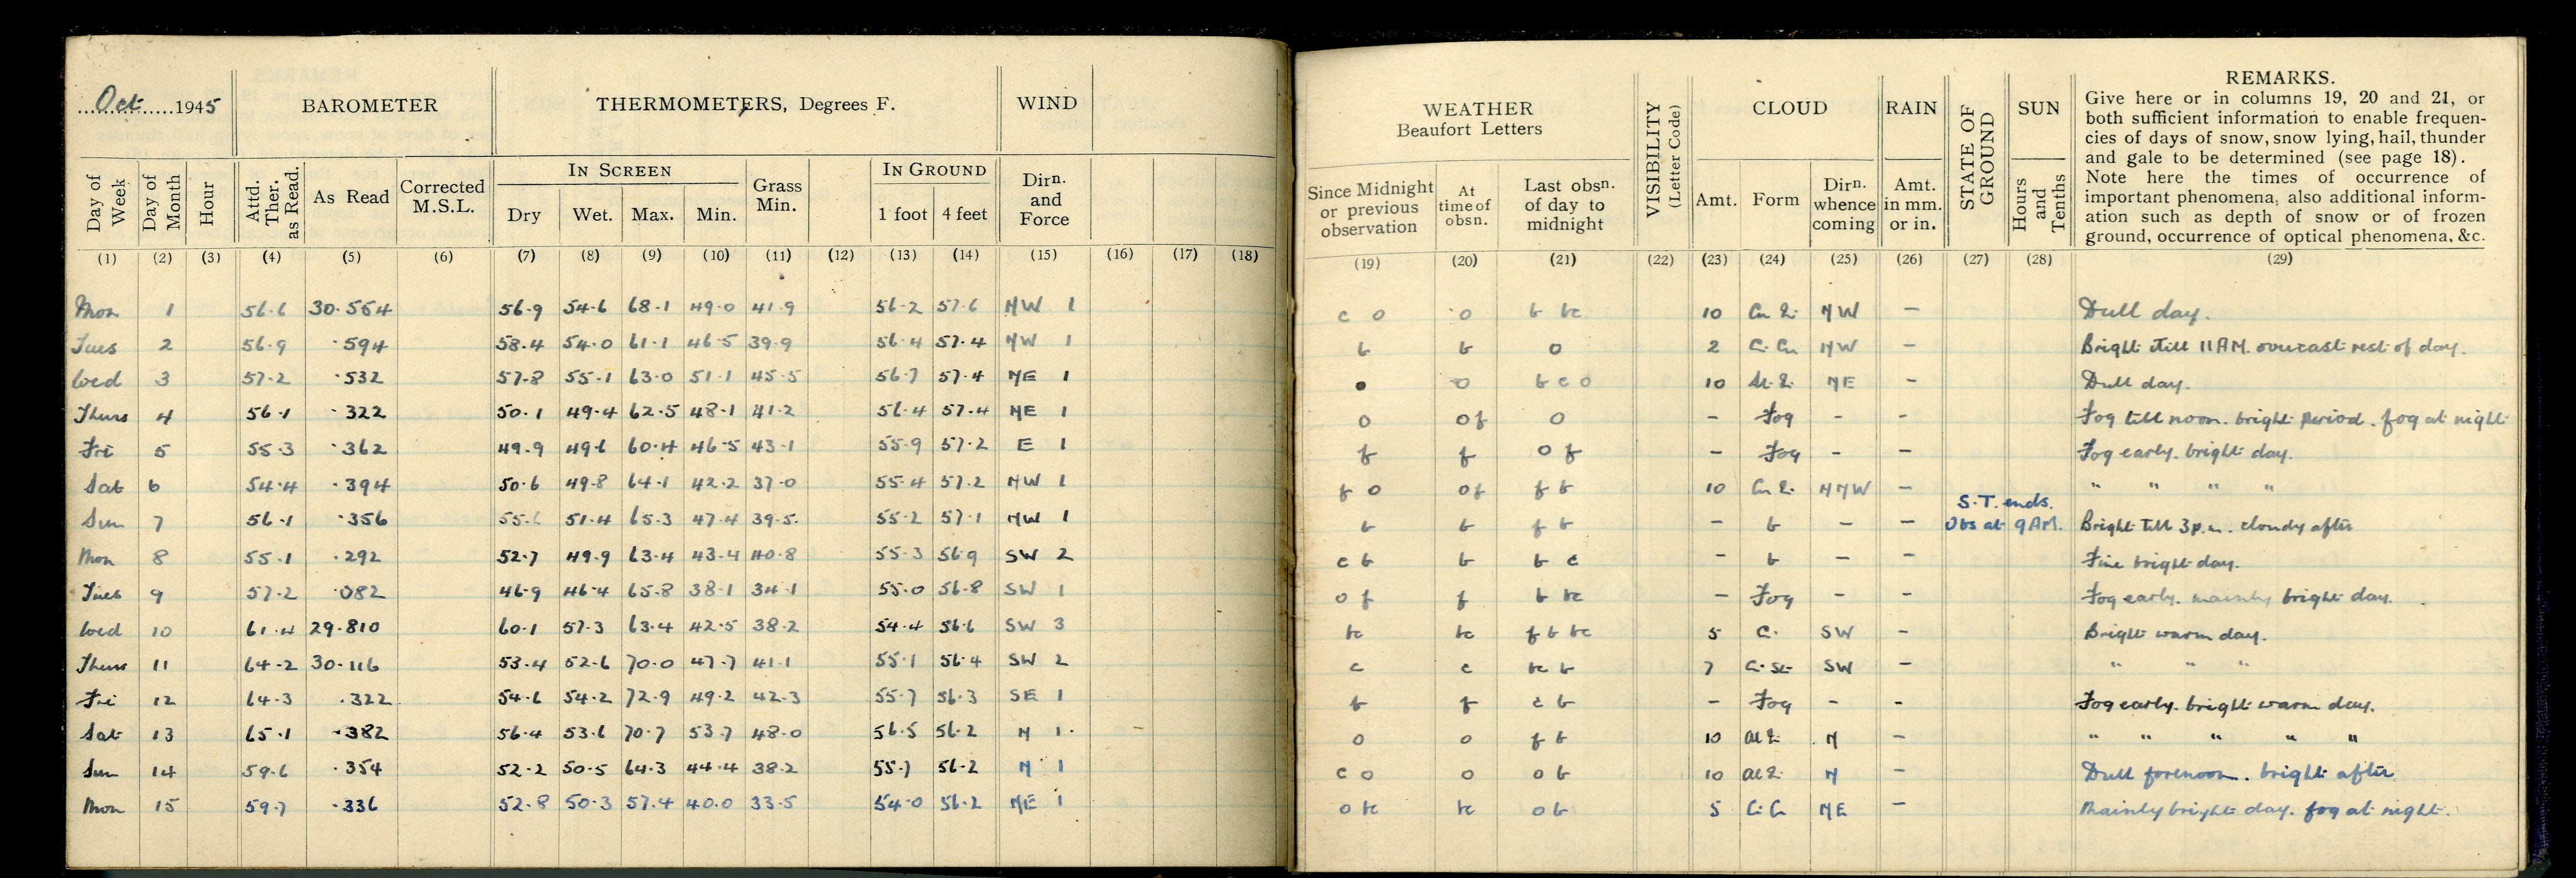 Oct 1945
BAROMETER
THERMOMETERS, Degrees F.
WIND
Day of Week
Day of Month
Hour
Attd. Ther. as Read.
As Read
Corrected M.S.L.
IN SCREEN
Dry Wet. Max. Min.
Grass Min.
IN GROUND
1 foot 4 feet
Dirn. and Force
(1) (2) (3) (4) (5) (6) (7) (8) (9) (10) (11) (12) (13) (14) (15) (16) (17) (18)
WEATHER
Beaufort Letters
VISIBILITY (Letter Code)
CLOUD
RAIN
STATE OF GROUND
SUN
REMARKS.
Give here or in columns 19, 20 and 21, or
both sufficient information to enable frequen-
cies of days of snow, snow lying, hail, thunder
and gale to be determined (see page 18).
Note here the times of occurrence of
important phenomena, also additional inform-
ation such as depth of snow or of frozen
ground, occurrence of optical phenomena, &c.
Since Midnight or previous observation
At time of obsn.
Last obsn. of day to midnight
Amt. Form
Dirn. whence coming
Amt. in mm. or in.
Hours and Tenths
(19) (20) (21) (22) (23) (24) (25) (26) (27) (28) (29)
Mon 1 56.6 30.554 56.9 54.6 68.1 49.0 41.9 56.2 57.6 NW 1 c o o b bc 10 NW - Dull day.
Tues 2 56.9 .594 58.4 54.0 61.1 46.5 39.9 56.4 57.4 NW 1 b b o 2 Ci.Cu NW - Bright till 11AM. overcast rest of day.
Wed 3 57.2 .532 57.8 55.1 63.0 51.1 45.5 56.7 57.4 NE 1 o b c o 10 NE - Dull day.
Thurs 4 56.1 .322 50.1 49.4 62.5 48.1 41.2 56.4 57.4 NE 1 o of o - Fog - - Fog till noon. bright period. fog at night
Fri 5 55.3 .362 49.9 49.6 60.4 46.5 43.1 55.9 57.2 E 1 f f o f - Fog - - Fog early. bright day.
Sat 6 54.4 .394 50.6 49.8 64.1 42.2 37.0 55.4 57.2 NW 1 f o of f b 10 NNW - " " " "
S.T. ends.
Sun 7 56.1 .356 55.6 51.4 65.3 47.4 39.5 55.2 57.1 NW 1 b b f b - b - - Obs at 9AM. Bright till 3p.m. cloudy after
Mon 8 55.1 .292 52.7 49.9 63.4 43.4 40.8 55.3 56.9 SW 2 c b b b c - b - - Fine bright day.
Tues 9 57.2 .082 46.9 46.4 65.8 38.1 34.1 55.0 56.8 SW 1 o f f b bc - Fog - - Fog early. mainly bright day.
Wed 10 61.4 29.810 60.1 57.3 63.4 42.5 38.2 54.4 56.6 SW 3 bc bc f b bc 5 SW - Bright warm day.
Thurs 11 64.2 30.116 53.4 52.6 70.0 47.7 41.1 55.1 56.4 SW 2 c c bc b 7 Ci.St SW - " " "
Fri 12 64.3 .322 54.6 54.2 72.9 49.2 42.3 55.7 56.3 SE 1 f c b - Fog - - Fog early. bright warm day.
Sat 13 65.1 .382 56.4 53.6 70.7 53.7 48.0 56.5 56.2 N 1 o o f b 10 N - " " " " "
Sun 14 59.6 .354 52.2 50.5 64.3 44.4 38.2 55.7 56.2 N 1 c o o o b 10 N - Dull forenoon. bright after
Mon 15 59.7 .336 52.8 50.3 57.4 40.0 33.5 54.0 56.2 NE 1 o bc bc o b 5 NE - Mainly bright day. fog at night.